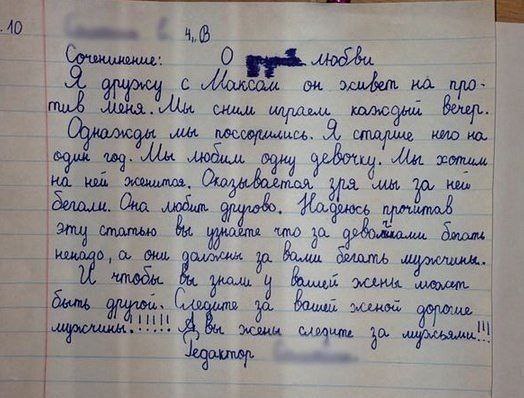 .10
4„В
Соченинение: О любви
Я дружу с Максам он живет на про-
тив меня. Мы сним играем каждый вечер.
Однажды мы поссорились. Я старше него на
один год. Мы любим одну девочку. Мы хотим
на ней женится. Оказывается зря мы за ней
бегали. Она любит другово. Надеюсь прочитав
эту статью вы узнаете что за девочками бегать
ненадо, а они должны за вами бегать мужчины.
И чтобы вы знали у вашей жены может
быть другой. Следите за вашей женой дорогие
мужчины!!!!!! А вы жены следите за мужьями!!!
Редактор